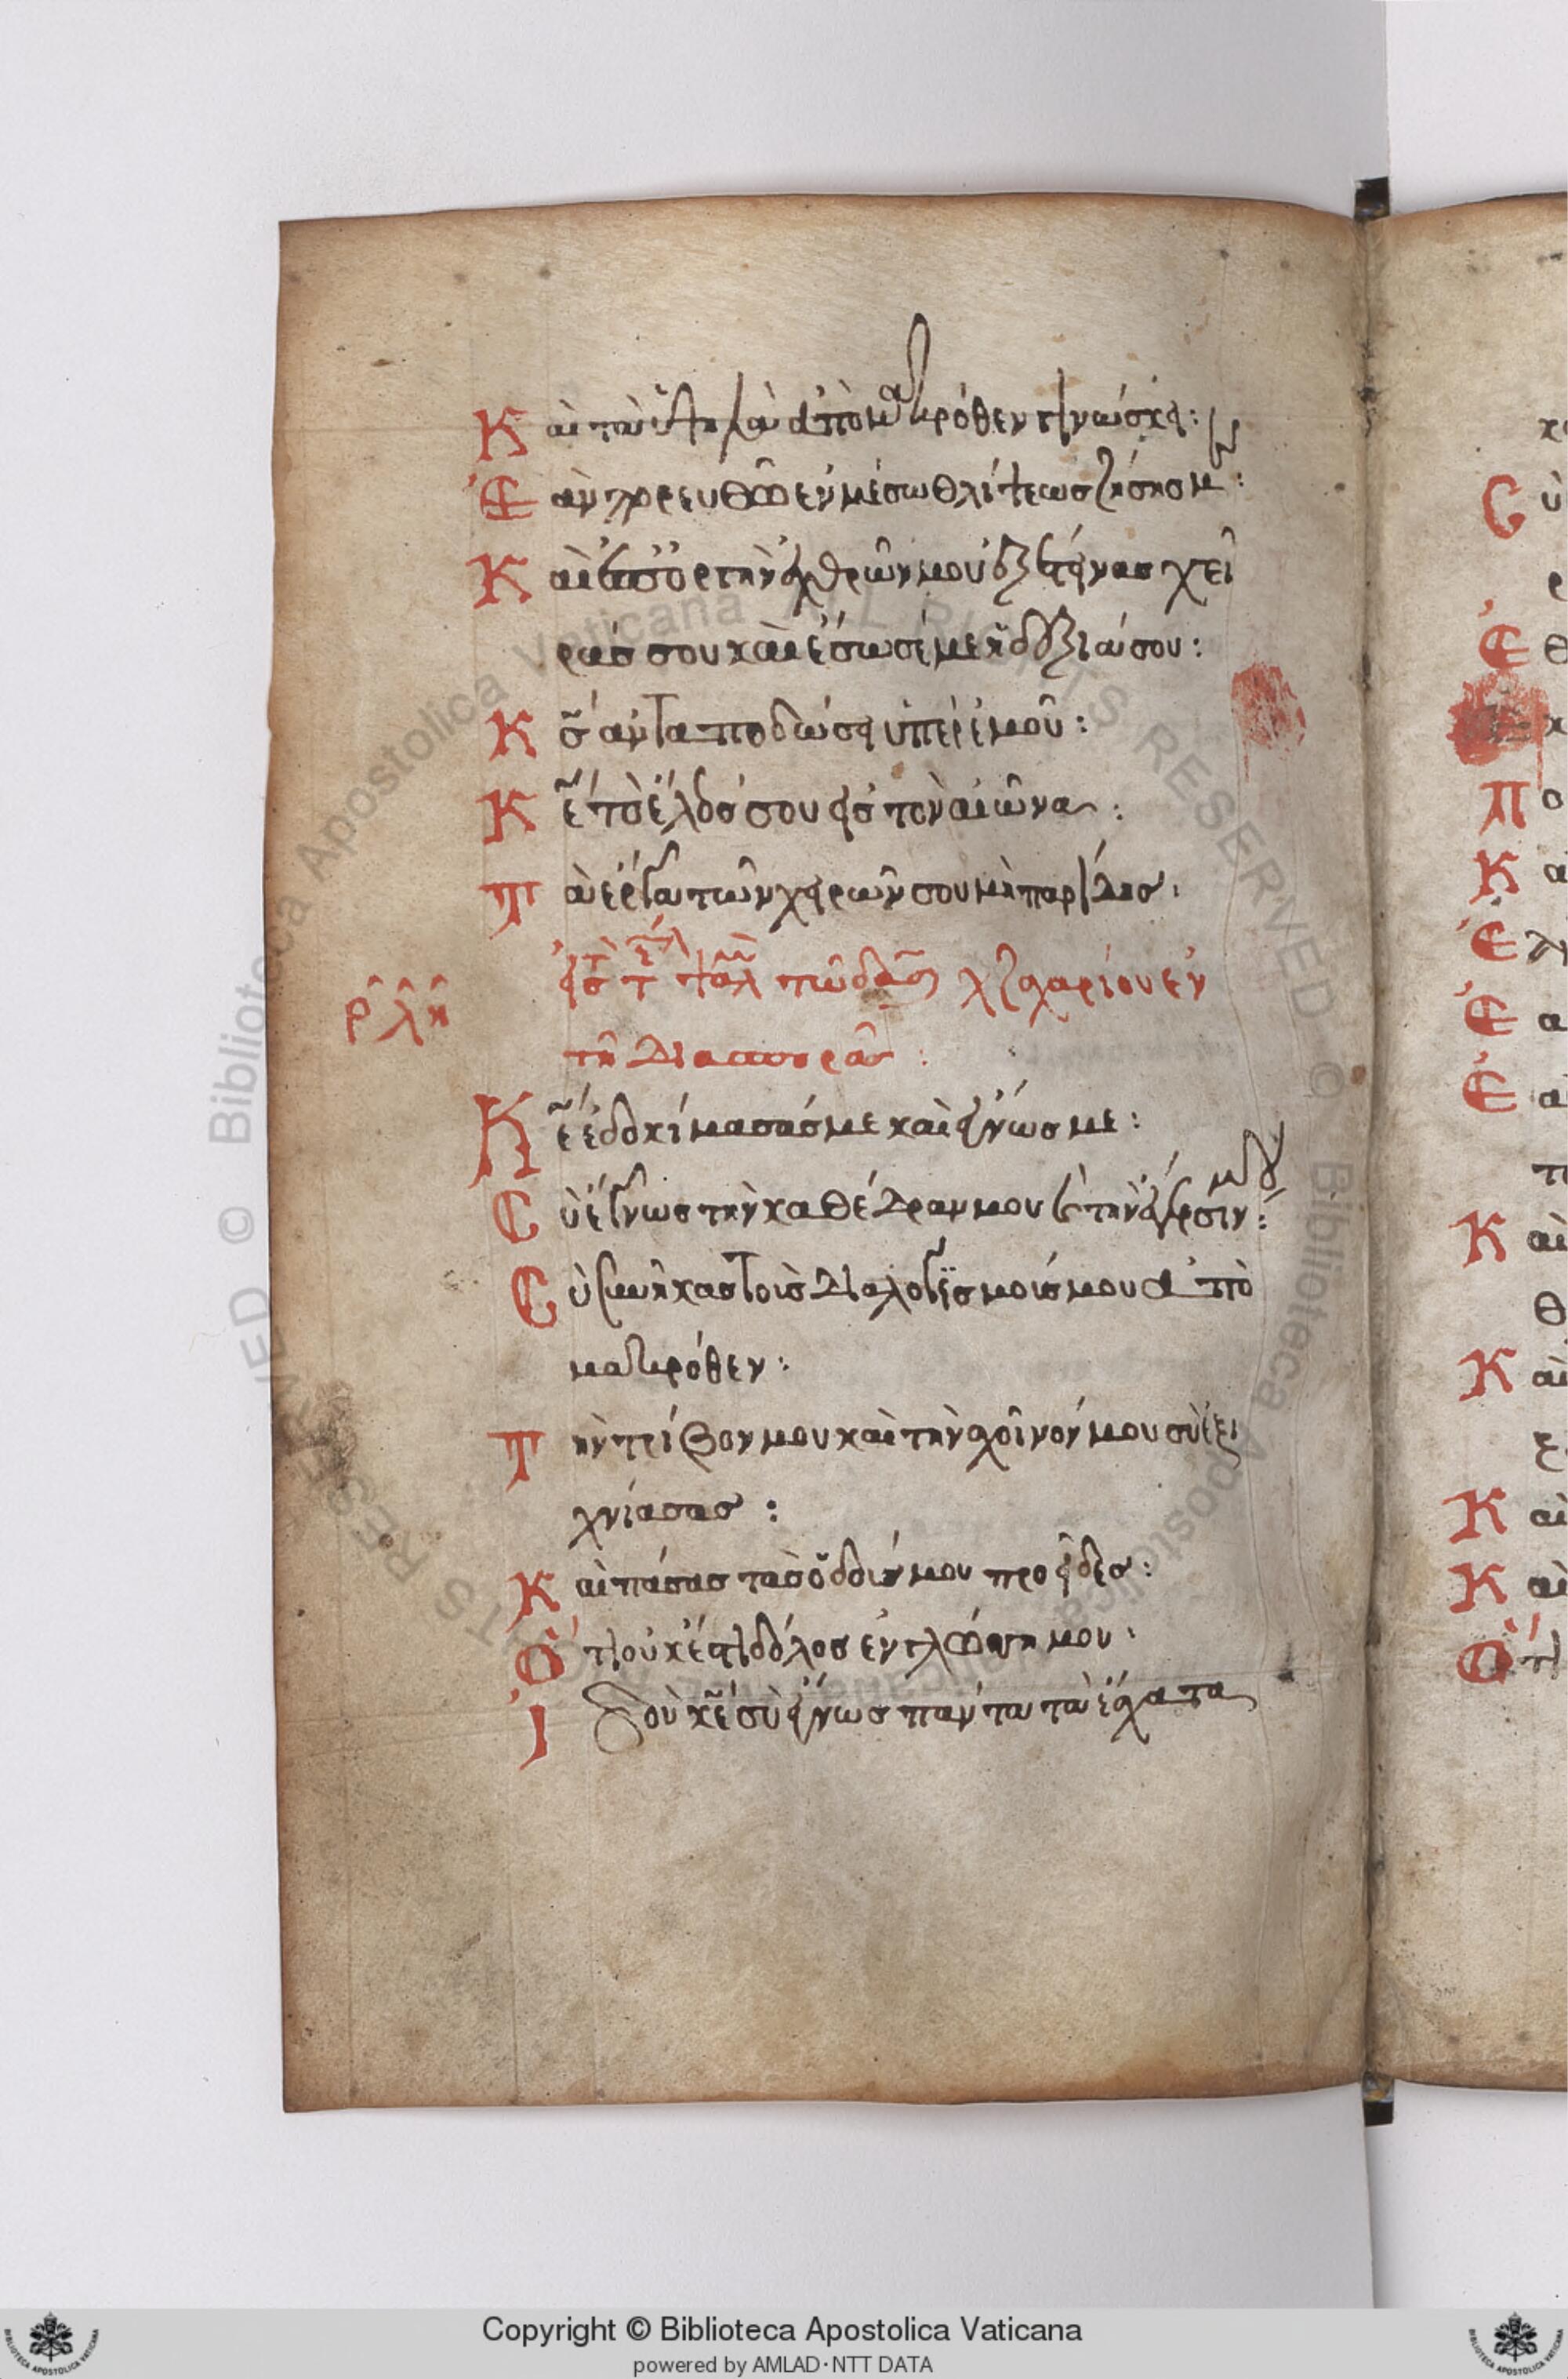 Καὶ τὰ ὑψηλὰ ἀπὸ μακρόθεν γινώσκει:
Ἐὰν πορευθῶ ἐν μέσω θλίψεως ζήσης με:
Καὶ ἐπ ὀργὴν ἐχθρῶν μου ἐξέτεινας χεῖ
ρας σου καὶ ἔσωσέ με ἡ δεξιά σου:
Κς ἀνταποδώσει ὑπὲρ ἐμοῦ:
Κε τὸ ἔλεος σου εἰς τὸν αἰῶνα:
Τὰ ἔργα τῶν χειρῶν σου μὴ παρίδης:
εἰς τὸ τέλ ψαλ τῶ δαδ ζαχαρίου ἐν
ρλη
τῆ διασπορᾶ:
Κε ἐδοκίμασάς με καὶ ἔγνως με:
Σὺ ἔγνως τὴν καθέδραν μου καὶ τὴν ἔγερσιν μου:
Σὺ συνῆκας τοὺς διαλογισμούς μου ἀπὸ
μακρόθεν:
Τὴν τρίβον μου καὶ τὴν σχοῖνόν μου σὺ ἐξι
χνίασας:
Καὶ πάσας τὰς ὁδούς μου προεῖδες:
Ὅτι οὐκ ἔστι δόλος ἐν γλώσση μου:
Ἰδοὺ κε σὺ ἔγνως πάντα τὰ ἔσχατα
Copyright © Biblioteca Apostolica Vaticana
powered by AMLAD·NTT DATA